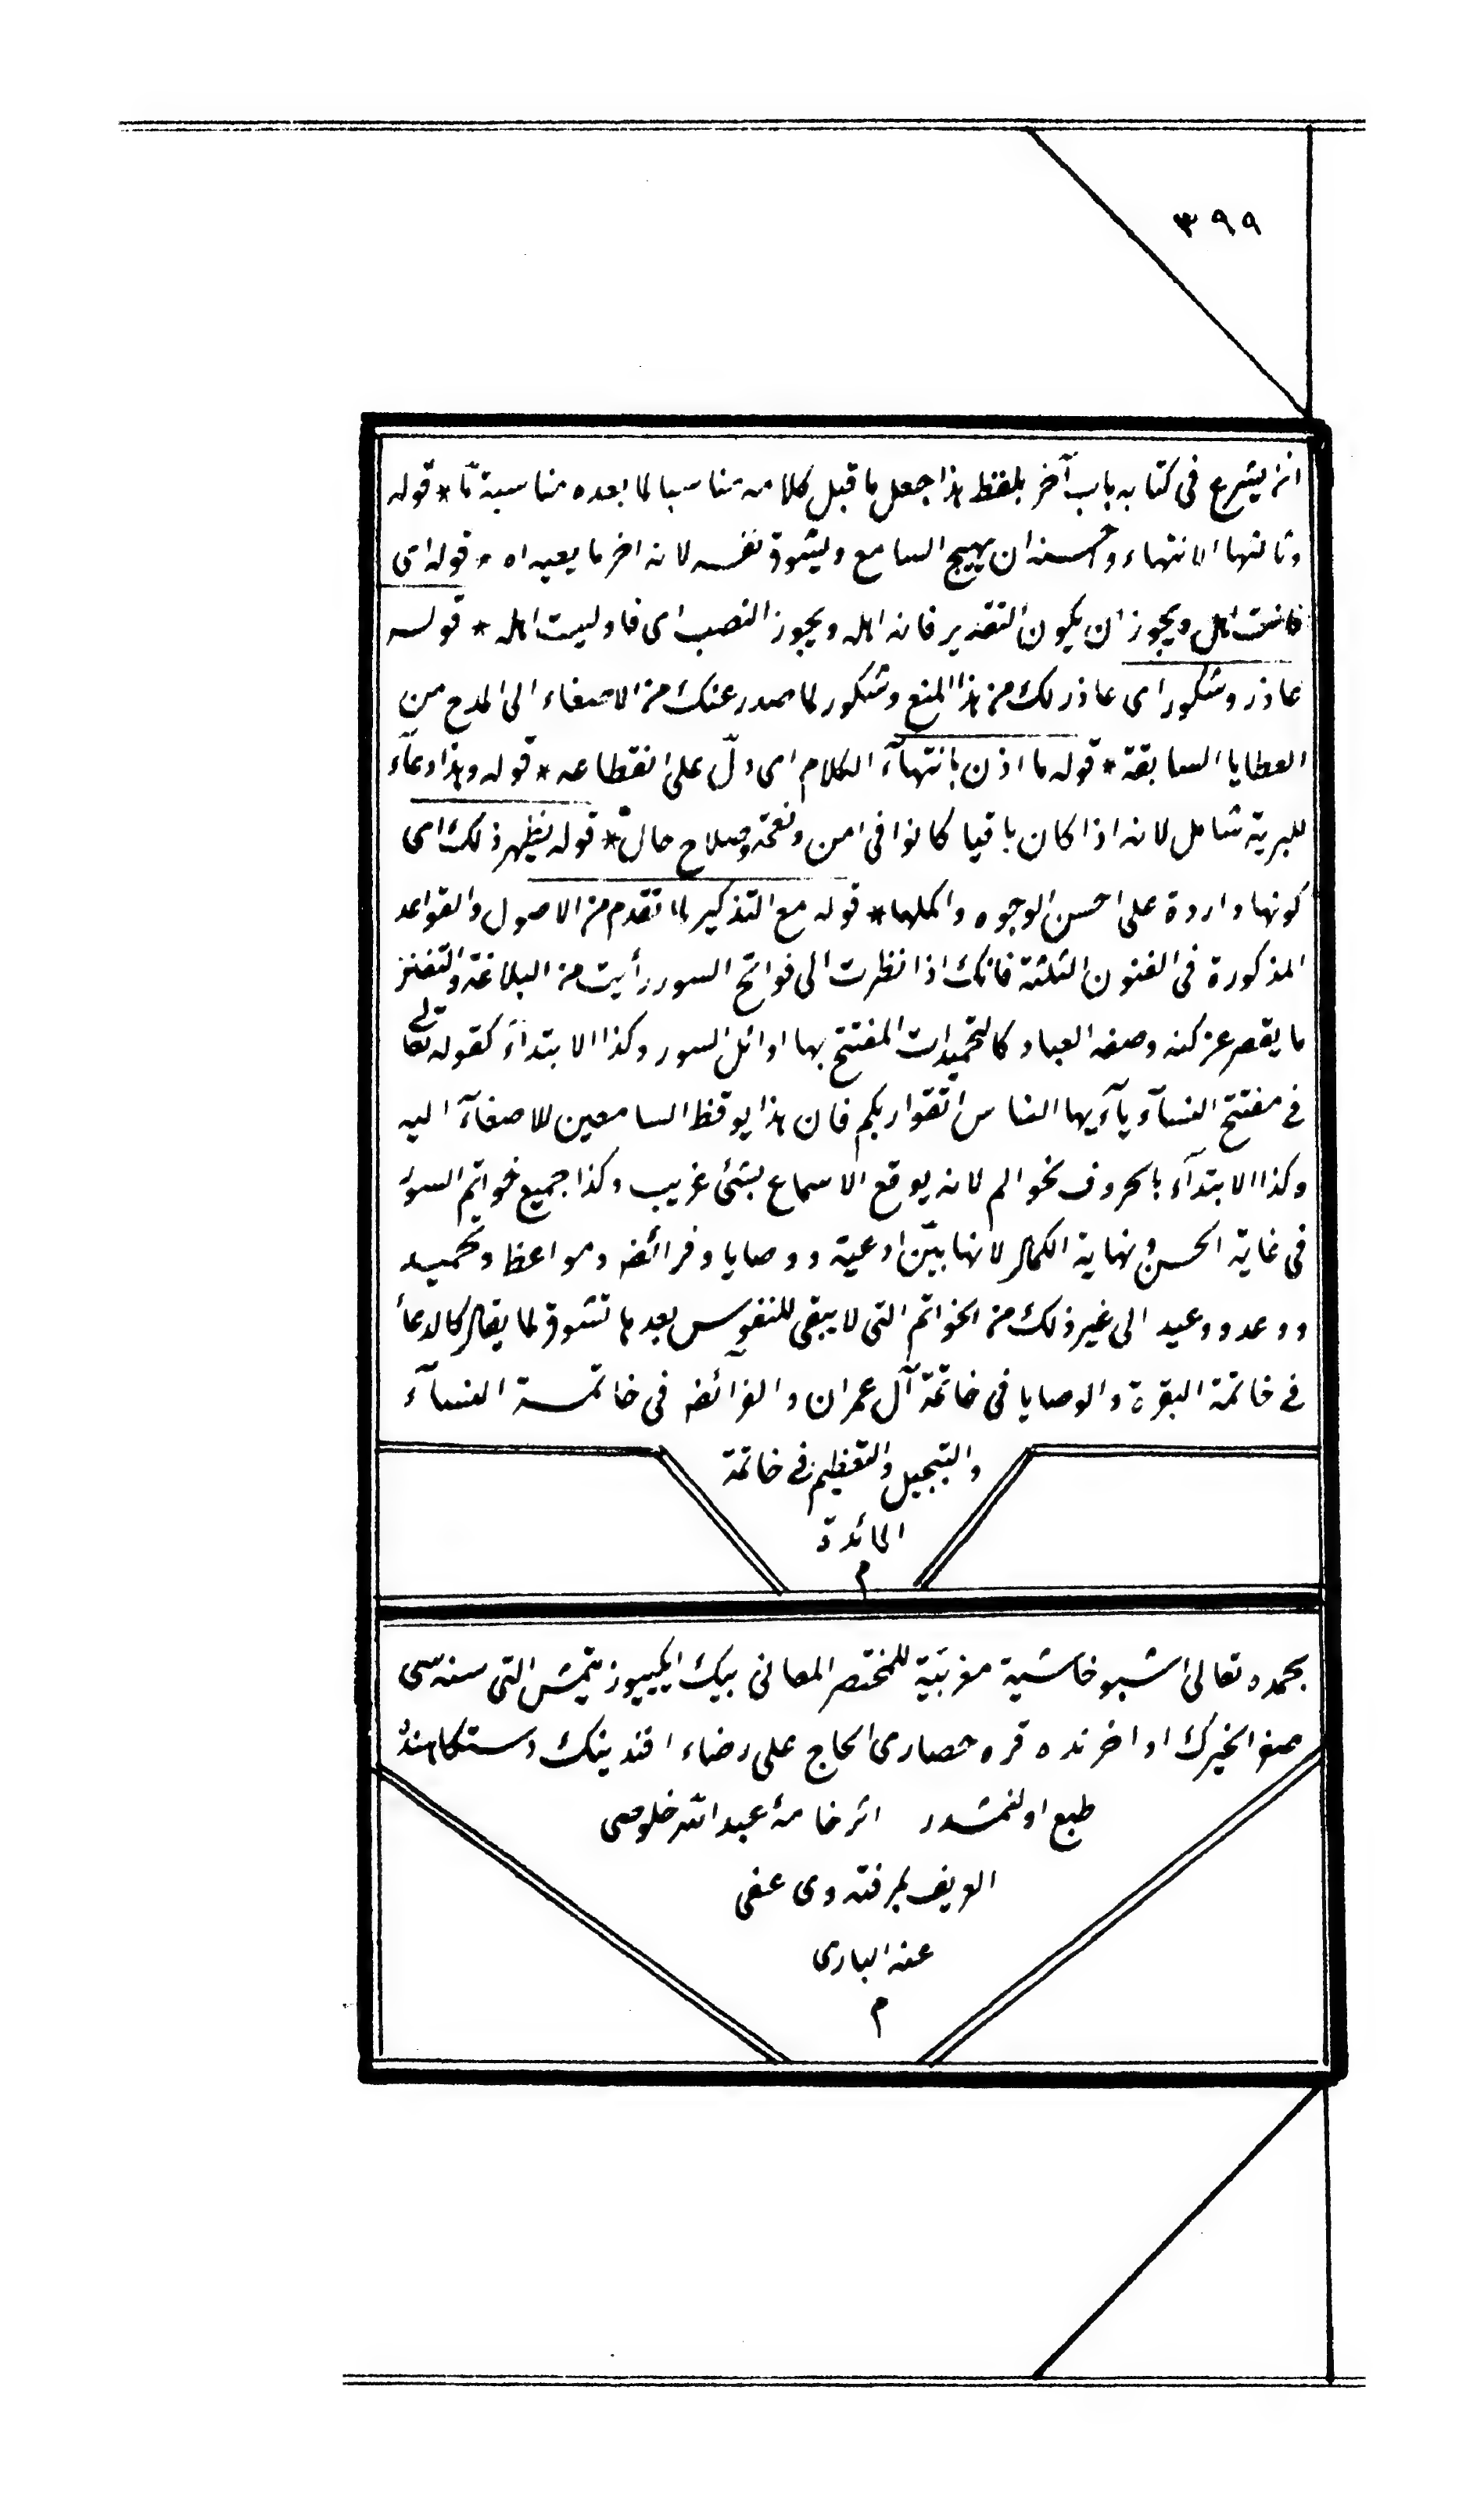 ٣٩٩
انه يشرع فى كتابه باب آخر بلفظ هذا جعل ما قبل كلامه مناسبا لما بعده مناسبة تا * قوله
وثالثها الانتهاء وحسنه ان يهيج السامع ويشوق نفسه لانه اخر ما يعيه اه * قوله اى
فانت اهل ويجوز ان يكون التقدير فانه اهله ويجوز النصب اى فاوليت اهله * قوله
عاذر وشكور اى عاذر لك من هذا المنع وشكور لما صدر عنك من الاصغاء الى المدح من
العطايا السابقة * قوله ما اذن بانتهآء الكلام اى دلّ على انقطاعه * قوله وهذا دعآء
للبرية شامل لانه اذا كان باقيا كانوا فى امن ونعمة وصلاح حال * قوله يظهر ذلك اى
كونها واردة على احسن الوجوه واكملها * قوله مع التذكير لما تقدم من الاصول والقواعد
المذكورة فى الفنون الثلثة فانك اذا نظرت الى فواتح السور رأيت من البلاغة والتفنن
ما يقصر عن كنه وصفه العباد كالتحميدات المفتتح بها اوائل السور وكذا الابتدآء كقوله تعالى
فى مفتتح النسآء يآءيها الناس اتقوا ربكم فان هذا يوقظ السامعين للاصغآء اليه
وكذا الابتدآء بالحروف نحو الم لانه يوقع الاسماع بشئ غريب وكذا جميع خواتم السور
فى غاية الحسن ونهاية الكمال لانها بين ادعية ووصايا وفرائض ومواعظ وتحميد
ووعد ووعيد الى غير ذلك من الخواتم التى لا يبقى للنفوس بعدها تشوق لما يقال كالدعآء
فى خاتمة البقرة والوصايا فى خاتمة آل عمران والفرآئض فى خاتمة النسآء
والتبجيل والتعظيم فى خاتمة
المائدة
م
بحمده تعالى اشبو حاشية مرغوبة للمختصر المعانى بيك ايكييوز يتمش التى سنه سى
صفر الخيرك اواخرنده قره حصارى الحاج على رضاء افندينك دستكاهنده
طبع اولنمشدر اثر خامهٔ عبد الله خلوصى
عفى
عنه البارى
م